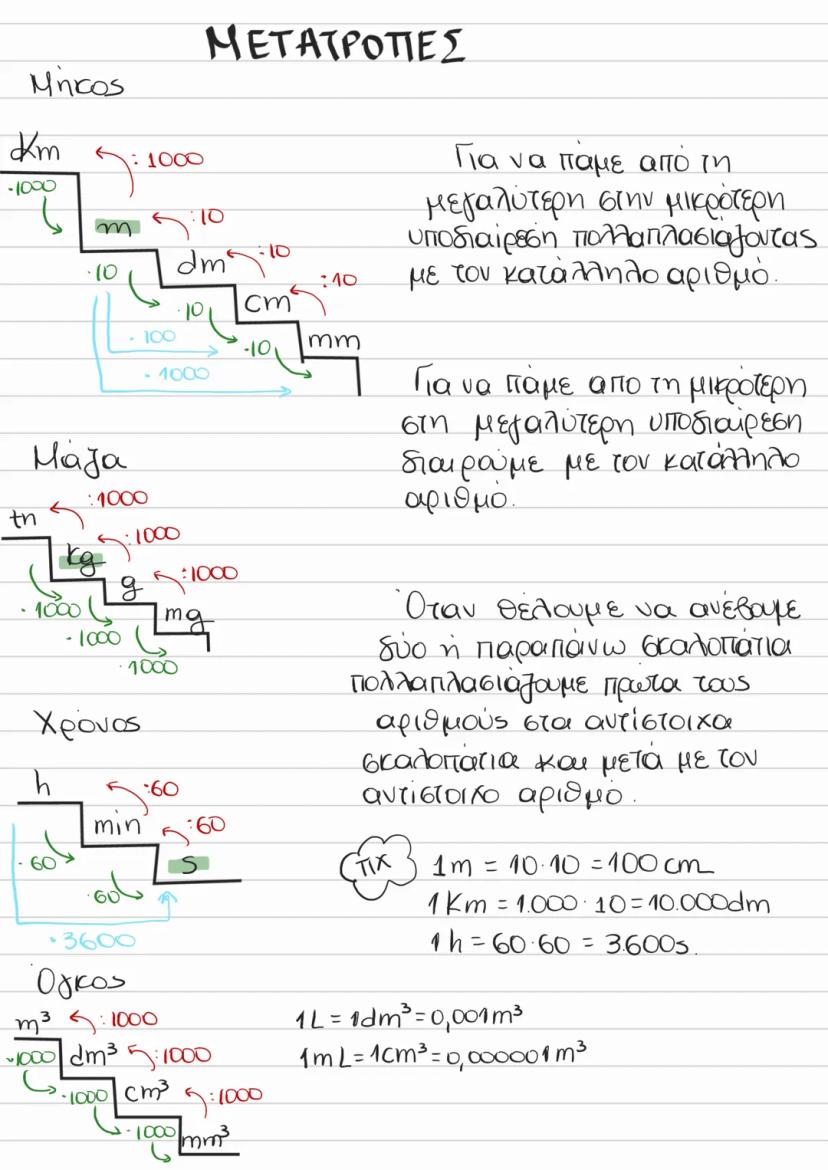 ΜΕΤΑΤΡΟΠΕΣ
Μήκος
Km
:1000
·1000
m
:10
dm
:10
·10
cm
:10
·10
mm
·100
·10
·1000
Για να πάμε από τη
μεγαλύτερη στην μικρότερη
υποδιαίρεση πολλαπλασιάζοντας
με τον κατάλληλο αριθμό.
Για να πάμε απο τη μικρότερη
στη μεγαλύτερη υποδιαίρεση
διαιρούμε με τον κατάλληλο
αριθμό.
Μάζα
tn
:1000
kg
:1000
g
:1000
mg
·1000
·1000
·1000
Όταν θέλουμε να ανέβουμε
δύο ή παραπάνω σκαλοπάτια
πολλαπλασιάζουμε πρώτα τους
αριθμούς στα αντίστοιχα
σκαλοπάτια και μετά με τον
αντίστοιχο αριθμό.
Χρόνος
h
:60
min
:60
s
·60
·60
·3600
πχ
1m = 10·10 = 100 cm
1 Km = 1.000·10 = 10.000dm
1 h = 60·60 = 3600s.
Όγκος
m³
:1000
·1000
dm³
:1000
·1000
cm³
:1000
·1000
mm³
1L = 1dm³ = 0,001m³
1mL = 1cm³ = 0,000001m³